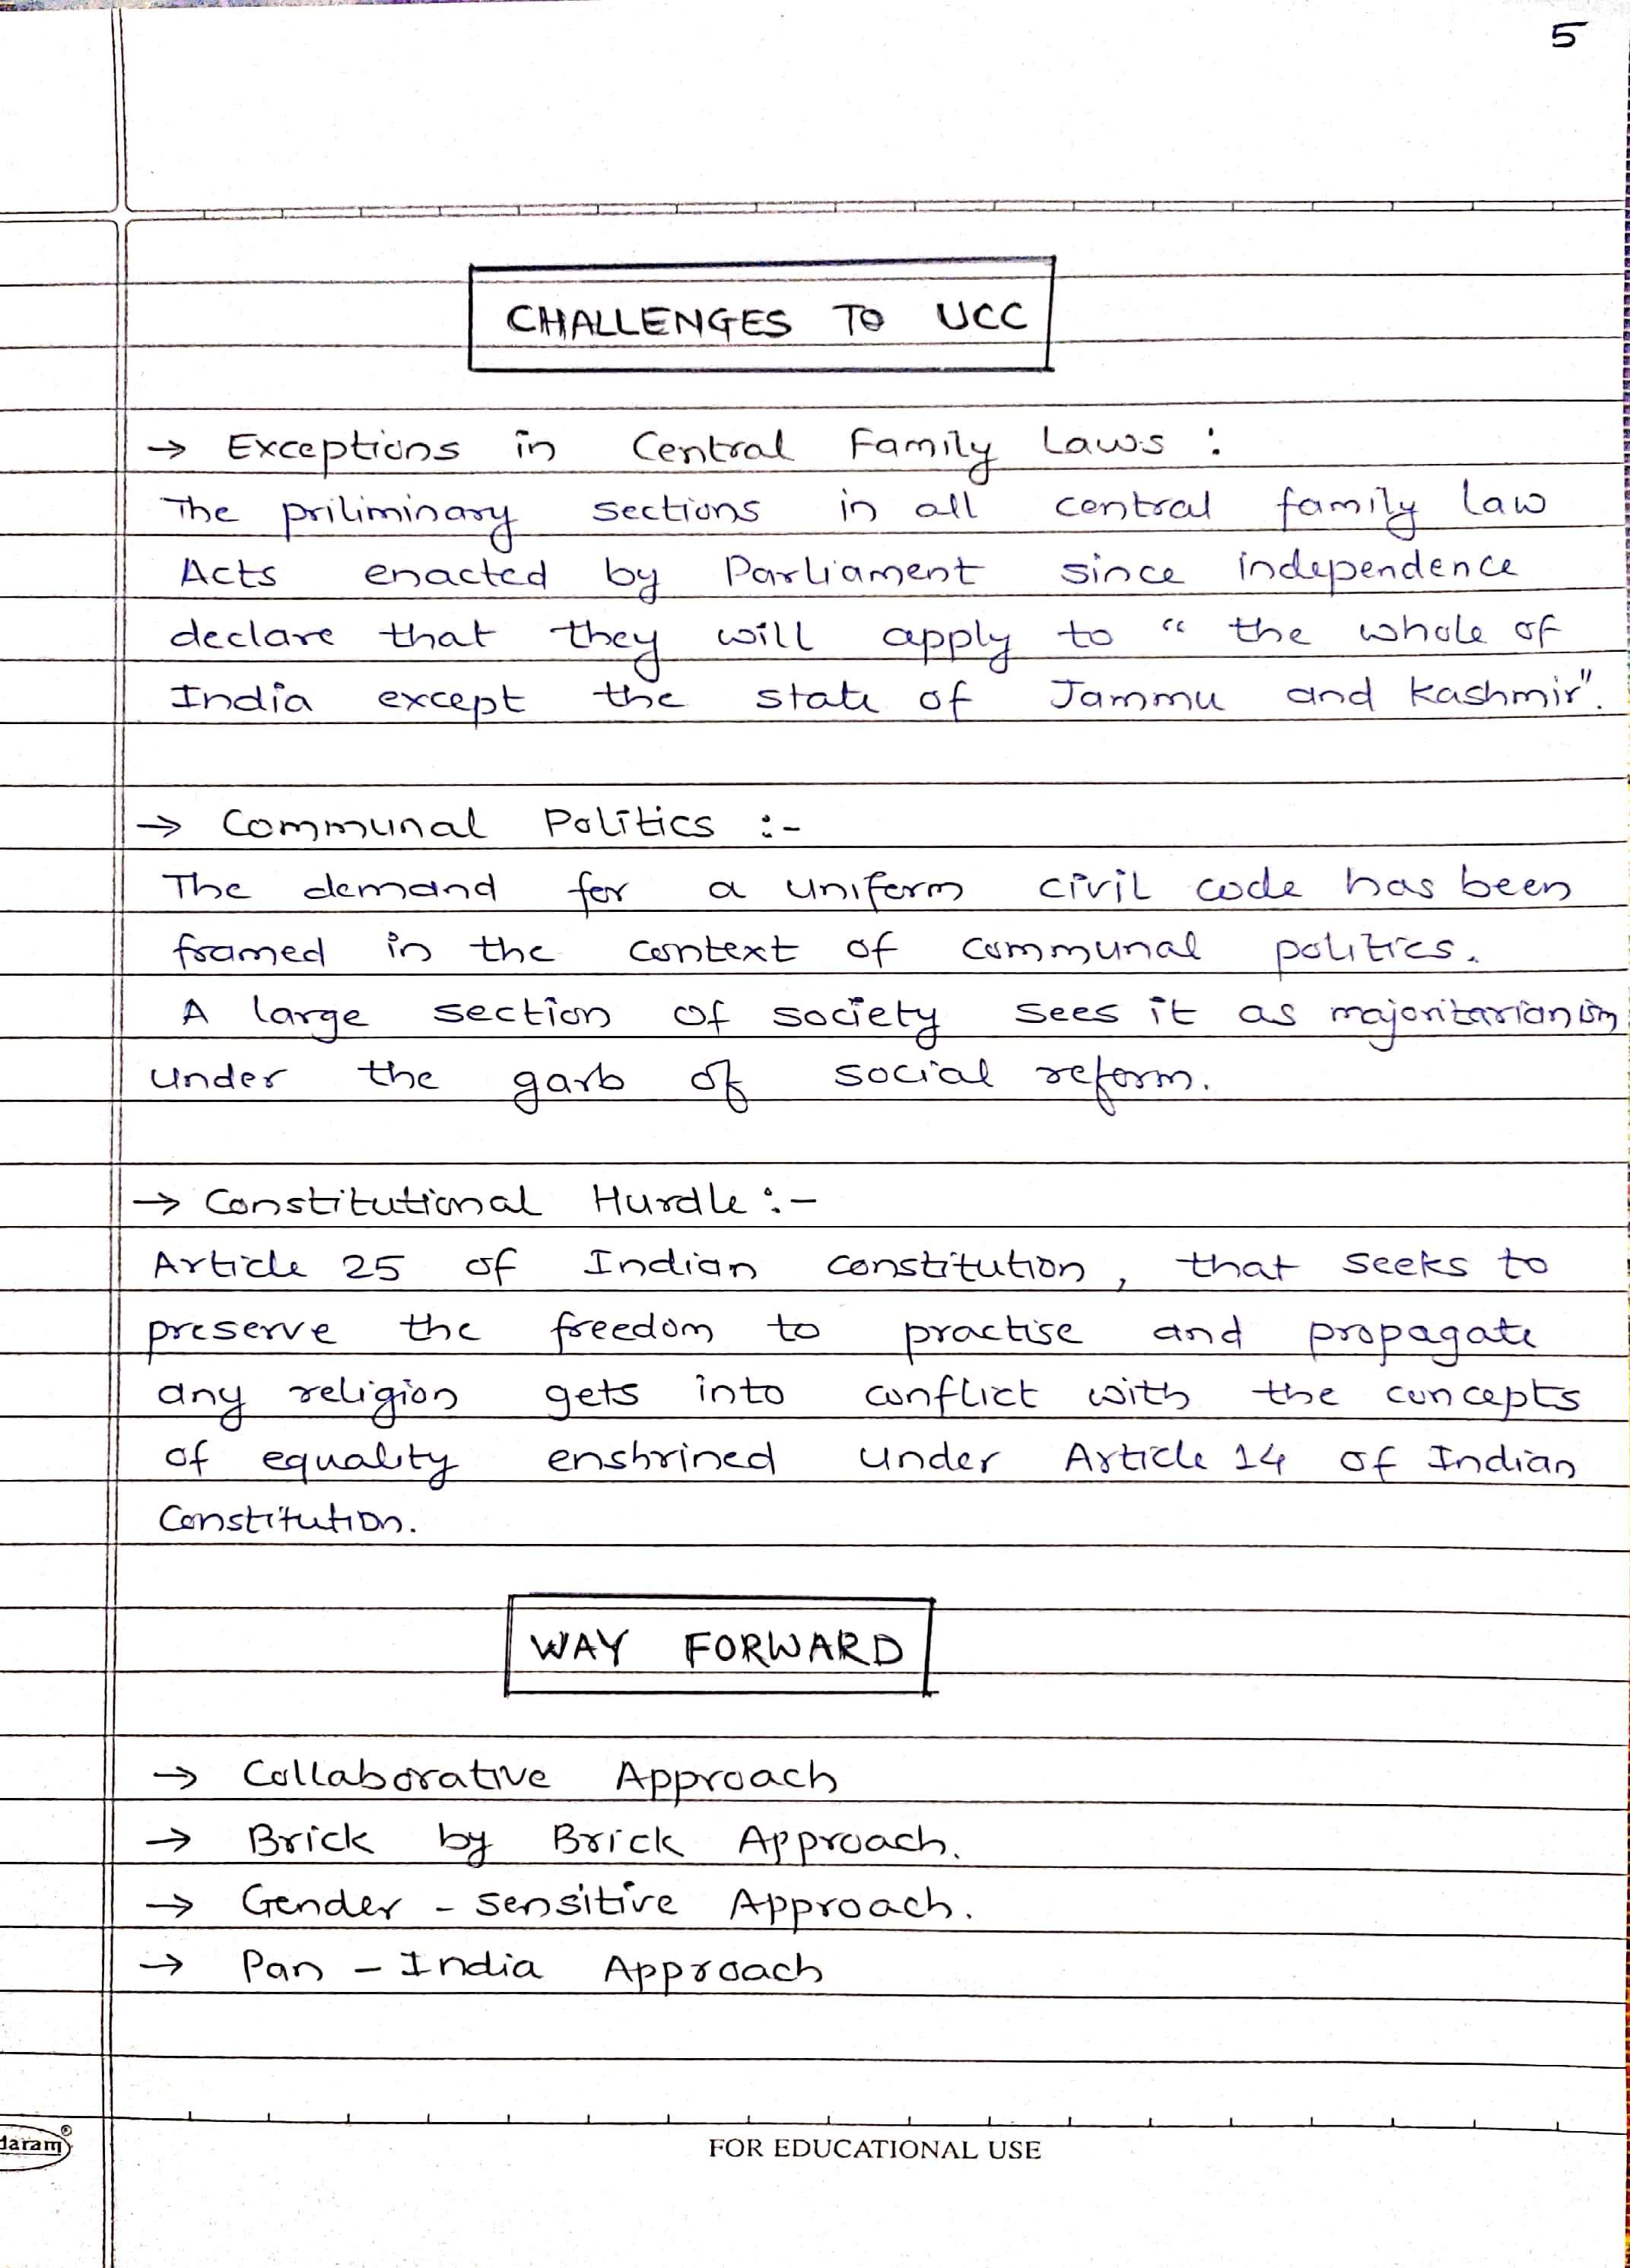 5
CHALLENGES TO UCC
→ Exceptions in Central Family Laws :
The priliminary sections in all central family law
Acts enacted by Parliament since independence
declare that they will apply to " the whole of
India except the state of Jammu and Kashmir".
→ Communal Politics :-
The demand for a uniform civil code has been
framed in the context of communal politics.
A large section of society sees it as majoritarianism
under the garb of social reform.
→ Constitutional Hurdle :-
Article 25 of Indian constitution, that seeks to
preserve the freedom to practise and propagate
any religion gets into conflict with the concepts
of equality enshrined under Article 14 of Indian
Constitution.
WAY FORWARD
→ Collaborative Approach
→ Brick by Brick Approach.
→ Gender - sensitive Approach.
→ Pan - India Approach
daram®
FOR EDUCATIONAL USE